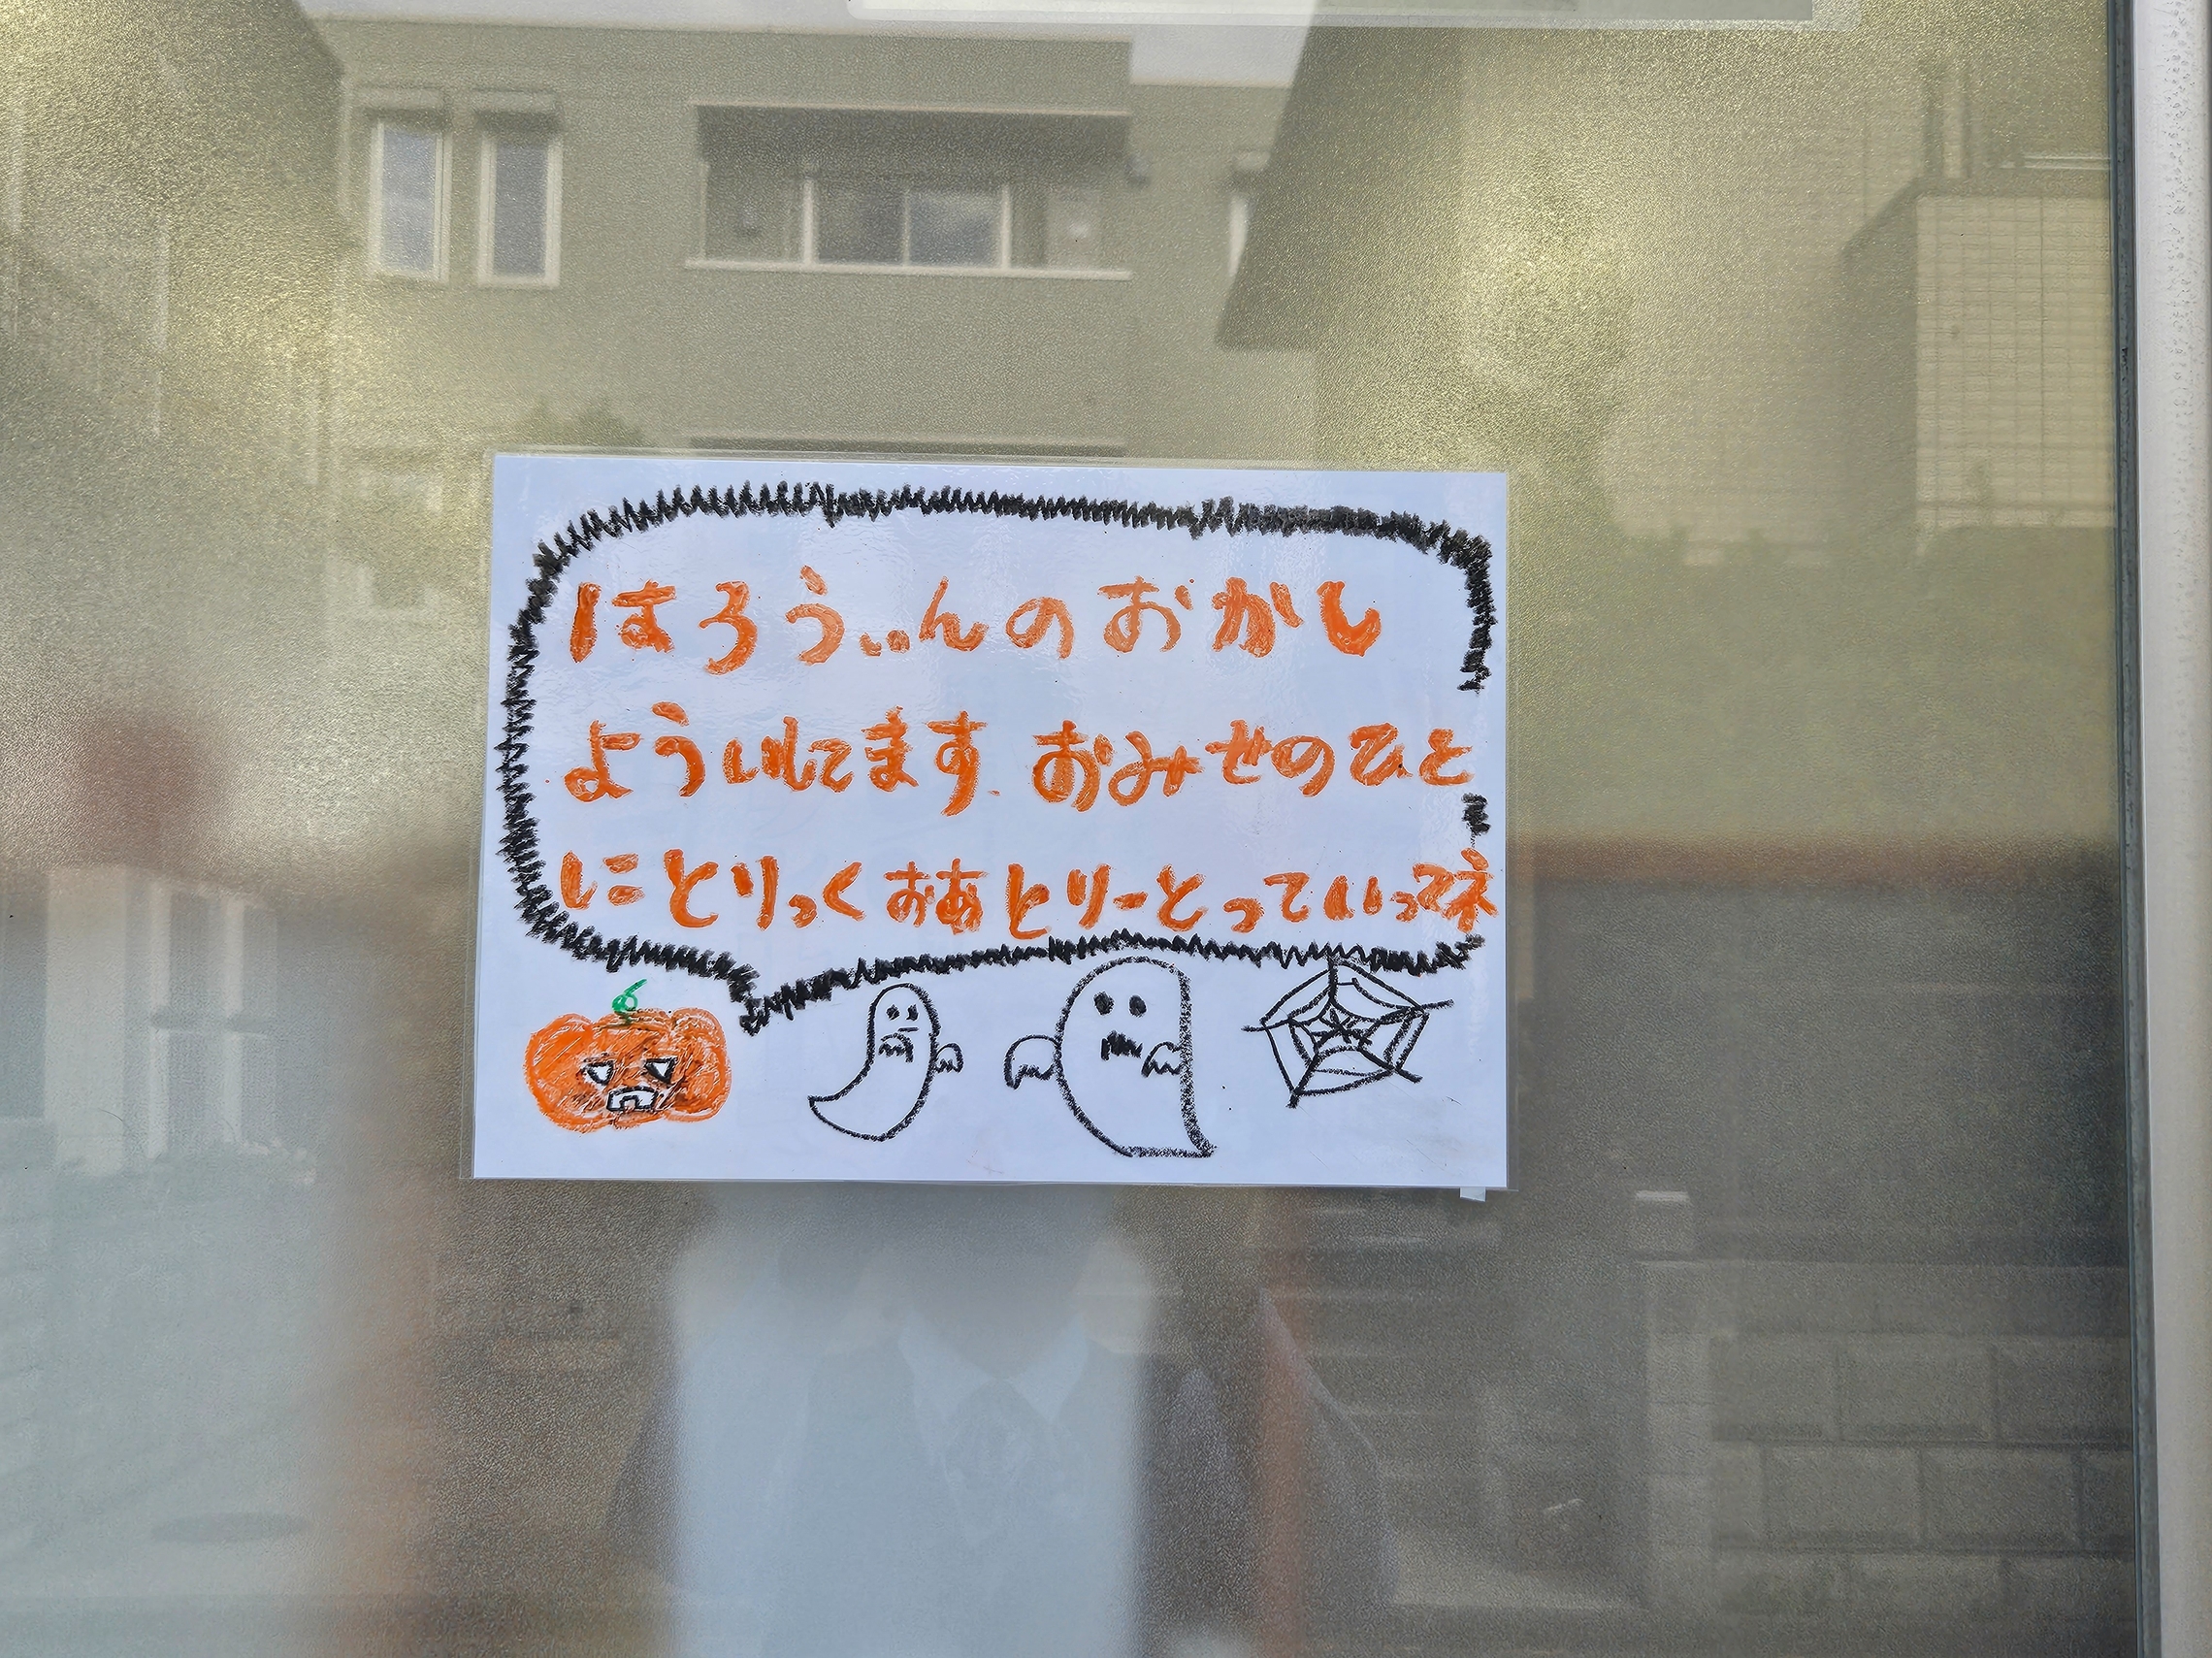 はろうぃんのおかし
よういしてます.おみせのひと
にことりっくおあとりーとっていってネ